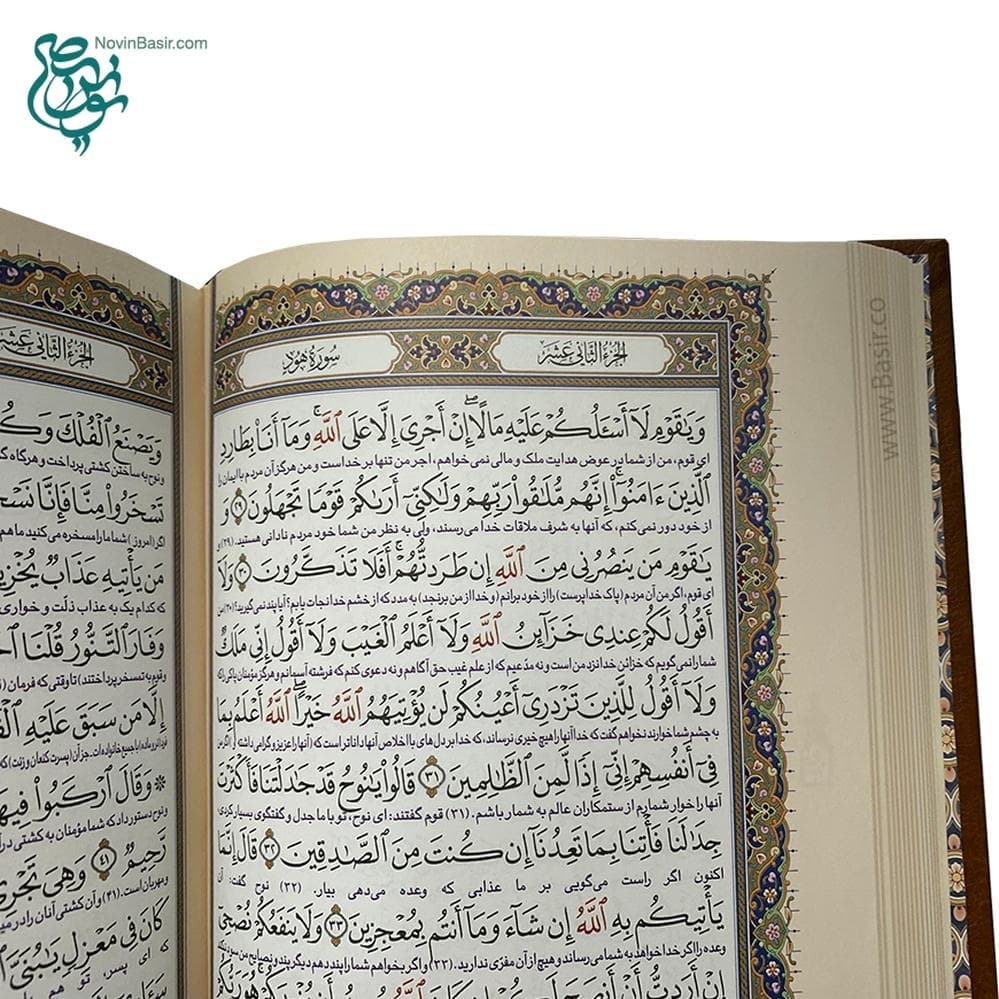 NovinBasir.com
الجزء الثانی عشر
سورة هود
وَيَـٰقَوْمِ لَآ أَسْـَٔلُكُمْ عَلَيْهِ مَالًا ۖ إِنْ أَجْرِىَ إِلَّا عَلَى ٱللَّهِ ۚ وَمَآ أَنَا۠ بِطَارِدِ
ای قوم، من از شما در عوض هدایت ملک و مالی نمی‌خواهم، اجر من تنها بر خداست و من هرگز آن مردم با ایمان را
ٱلَّذِينَ ءَامَنُوٓا۟ ۚ إِنَّهُم مُّلَـٰقُوا۟ رَبِّهِمْ وَلَـٰكِنِّىٓ أَرَىٰكُمْ قَوْمًا تَجْهَلُونَ ﴿٢٩﴾ وَ
از خود دور نمی‌کنم، که آنها به شرف ملاقات خدا می‌رسند، ولی به نظر من شما خود مردم نادانی هستید. (۲۹) و
يَـٰقَوْمِ مَن يَنصُرُنِى مِنَ ٱللَّهِ إِن طَرَدتُّهُمْ ۚ أَفَلَا تَذَكَّرُونَ ﴿٣٠﴾ وَلَآ
ای قوم، اگر من آن مردم (پاک خداپرست) را از خود برانم (و خدا از من برنجد) به مدد که از خشم خدا نجات یابم؟ آیا پند نمی‌گیرید؟ (۳۰) من
أَقُولُ لَكُمْ عِندِى خَزَآئِنُ ٱللَّهِ وَلَآ أَعْلَمُ ٱلْغَيْبَ وَلَآ أَقُولُ إِنِّى مَلَكٌ
شما را نمی‌گویم که خزائن خدا نزد من است و نه مدّعیم که از علم غیب حق آگاهم و نه دعوی کنم که فرشته آسمانم و هرگز مؤمنان پاکی را که
وَلَآ أَقُولُ لِلَّذِينَ تَزْدَرِىٓ أَعْيُنُكُمْ لَن يُؤْتِيَهُمُ ٱللَّهُ خَيْرًا ۖ ٱللَّهُ أَعْلَمُ بِمَا
به چشم شما خوارند نخواهم گفت که خدا آنها را هیچ خیری نرساند، که خدا بر دل‌های با اخلاص آنها داناتر است که (آنها را عزیز و گرامی داشته) اگر من
فِىٓ أَنفُسِهِمْ ۖ إِنِّىٓ إِذًا لَّمِنَ ٱلظَّـٰلِمِينَ ﴿٣١﴾ قَالُوا۟ يَـٰنُوحُ قَدْ جَـٰدَلْتَنَا فَأَكْثَرْتَ
آنها را خوار شمارم از ستمکاران عالم به شمار باشم. (۳۱) قوم گفتند: ای نوح، تو با ما جدل و گفتگوی بسیار کردی
جِدَٰلَنَا فَأْتِنَا بِمَا تَعِدُنَآ إِن كُنتَ مِنَ ٱلصَّـٰدِقِينَ ﴿٣٢﴾ قَالَ إِنَّمَا
اکنون اگر راست می‌گویی بر ما عذابی که وعده می‌دهی بیار. (۳۲) نوح گفت: آن
يَأْتِيكُم بِهِ ٱللَّهُ إِن شَآءَ وَمَآ أَنتُم بِمُعْجِزِينَ ﴿٣٣﴾ وَلَا يَنفَعُكُمْ نُصْحِىٓ
وعده را اگر خدا خواهد به شما می‌رساند و هیچ از آن مفرّی ندارید. (۳۳) و اگر بخواهم شما را پند دهم دیگر پند و نصایح من سود نکند
إِنْ أَرَدتُّ أَنْ أَنصَحَ
الجزء الثانی عشر
وَيَصْنَعُ ٱلْفُلْكَ وَكُ
و نوح به ساختن کشتی پرداخت و هرگاه
تَسْخَرُوا۟ مِنَّا فَإِنَّا نَسْخَ
اگر (امروز) شما ما را مسخره می‌کنید ما هم
مَن يَأْتِيهِ عَذَابٌ يُخْزِي
که کدام یک به عذاب ذلّت و خواری
وَفَارَ ٱلتَّنُّورُ قُلْنَا ٱحْ
و قوم به تمسخر پرداختند) تا وقتی که فرمان
إِلَّا مَن سَبَقَ عَلَيْهِ ٱلْقَ
وَقَالَ ٱرْكَبُوا۟ فِيهَ
و نوح دستور داد که شما مؤمنان به کشتی در
رَّحِيمٌ ﴿٤١﴾ وَهِىَ تَجْرِى
و مهربان است. (۴۱) و آن کشتی آنان را در
كَانَ فِى مَعْزِلٍ يَـٰبُنَىَّ
که ای پسر، تو هم
www.Basir.co